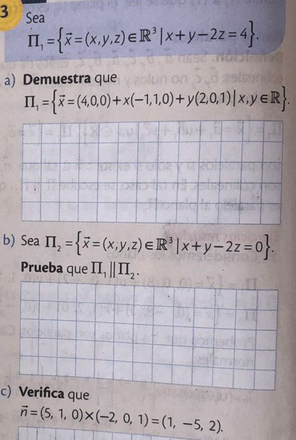 3
Sea
Π₁={x⃗=(x,y,z)∈ℝ³|x+y−2z=4}.
a) Demuestra que
Π₁={x⃗=(4,0,0)+x(−1,1,0)+y(2,0,1)|x,y∈ℝ}.
b) Sea Π₂={x⃗=(x,y,z)∈ℝ³|x+y−2z=0}.
Prueba que Π₁||Π₂.
c) Verifica que
n⃗=(5, 1, 0)×(−2, 0, 1)=(1, −5, 2).